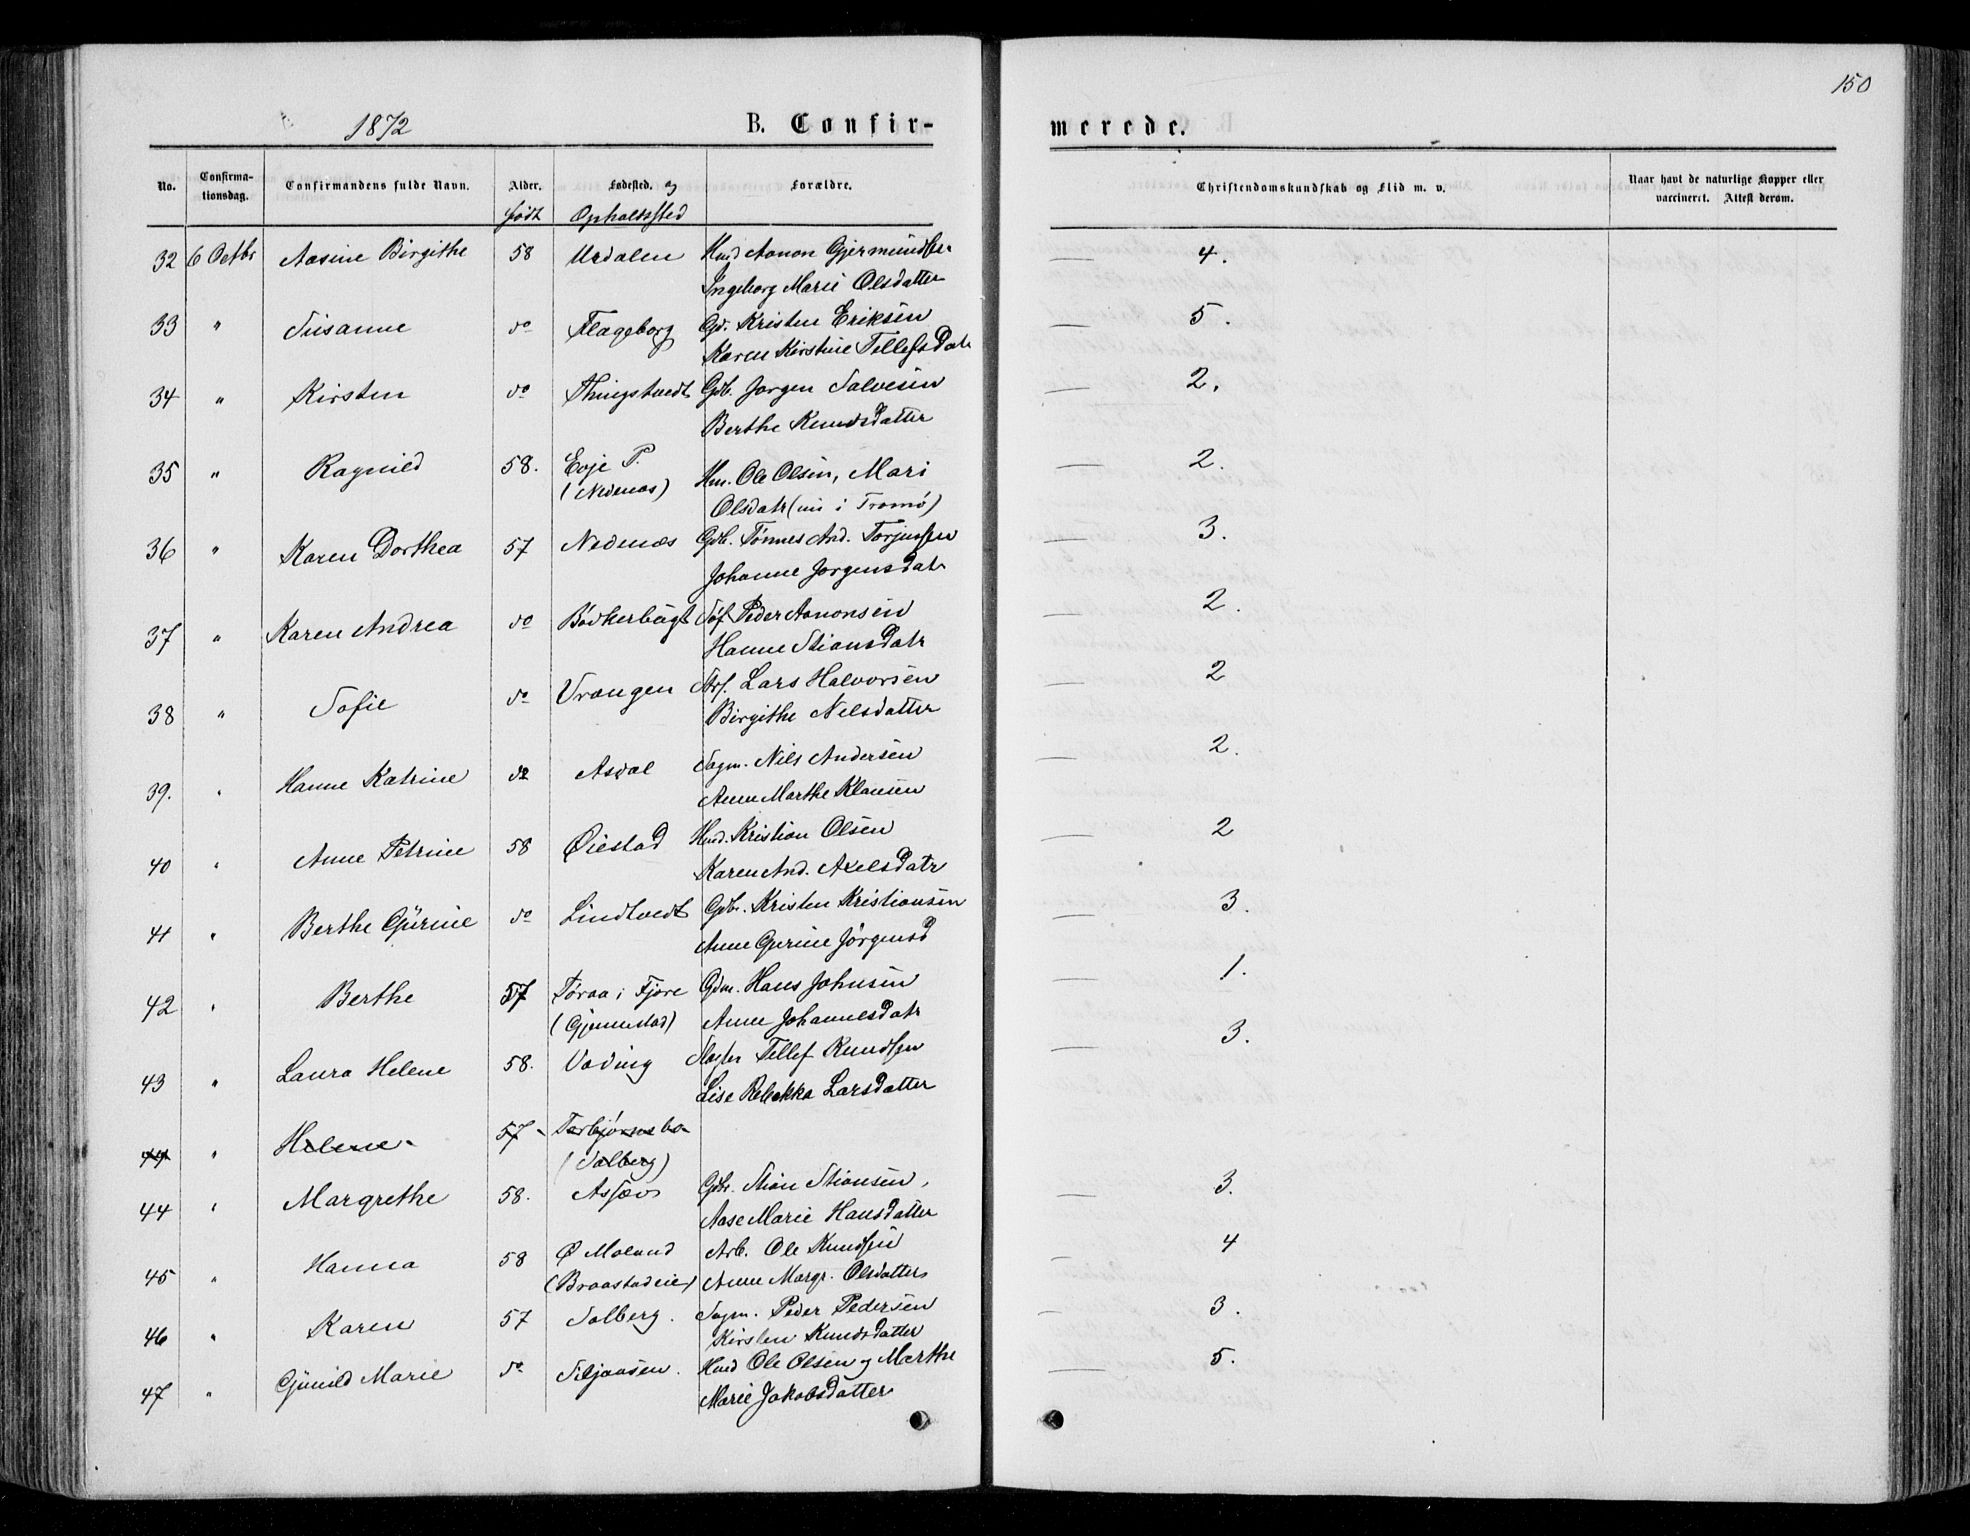 150
1872 B. Confir- merede.
No. Confirma- tionsdag. Confirmandens fulde Navn. Alder. født Fødested. og Opholdssted Forældre. Christendomskundskab og Flid m. v. Naar havt de naturlige Kopper eller vaccineret. Attest derom.
32 6 Octbr Aasine Birgithe 58 Urdalen Hmd Aanon Gjermundsen — 4.
Ingeborg Marie Olsdatter
33 " Susanne do Flageborg Gd. Kristen Eriksen — 5.
Karen Kirstine Tellefsdatr
34 " Kirsten do Thingstvedt Gdb. Jørgen Salvesen — 2.
Berthe Knudsdatter
35 " Ragnild 58. Evje P. Hm. Ole Olsen, Mari — 2.
(Nedenæs) Olsdatr (nu i Tromø)
36 " Karen Dorthea 57 Nedenæs Gdb. Tønnes And. Torjussen — 3.
Johanne Jørgensdatr
37 " Karen Andrea do Bødkerbugt Søf Peder Aanonsen — 2.
Hanne Stiansdatr
38 " Sofie do Vrangen Arb. Lars Halvorsen — 2
Birgithe Nelsdatter
39. " Hanne Katrine do Asdal Sagm. Nils Andersen — 2.
Anne Marthe Klausen
40 " Anne Petrine 58 Øiestad Hmd. Kristian Olsen — 2
Karen And. Axelsdatr
41 " Berthe Gurine do Lindtvedt Gdbr. Kristen Kristiansen — 3.
Anne Gurine Jørgensd
42 " Berthe 57 Føraa i Fjære Gdm. Hans Johnsen — 1.
(Gjennestad) Anne Johannesdatr
43 " Laura Helene 58. Vading Tellef Knudsen — 3.
Lise Rebekka Larsdatter
44 " Helene 57 Torbjørnsbo
(Solberg)
44 " Margrethe 58. Assæv Gdbr. Stian Stiansen, — 3.
Aase Marie Hansdatter
45 " Hanna 58 Ø Moland Arb. Ole Knudsen — 4
(Braastadeie) Anne Margr. Olsdatter
46 " Karen 57 Solberg. Sagm. Peder Pedersen — 3.
Kirsten Knudsdatter
47 " Gunild Marie do Siljaasen. Hmd Ole Olsen og Marthe — 5.
Marie Jakobsdatter